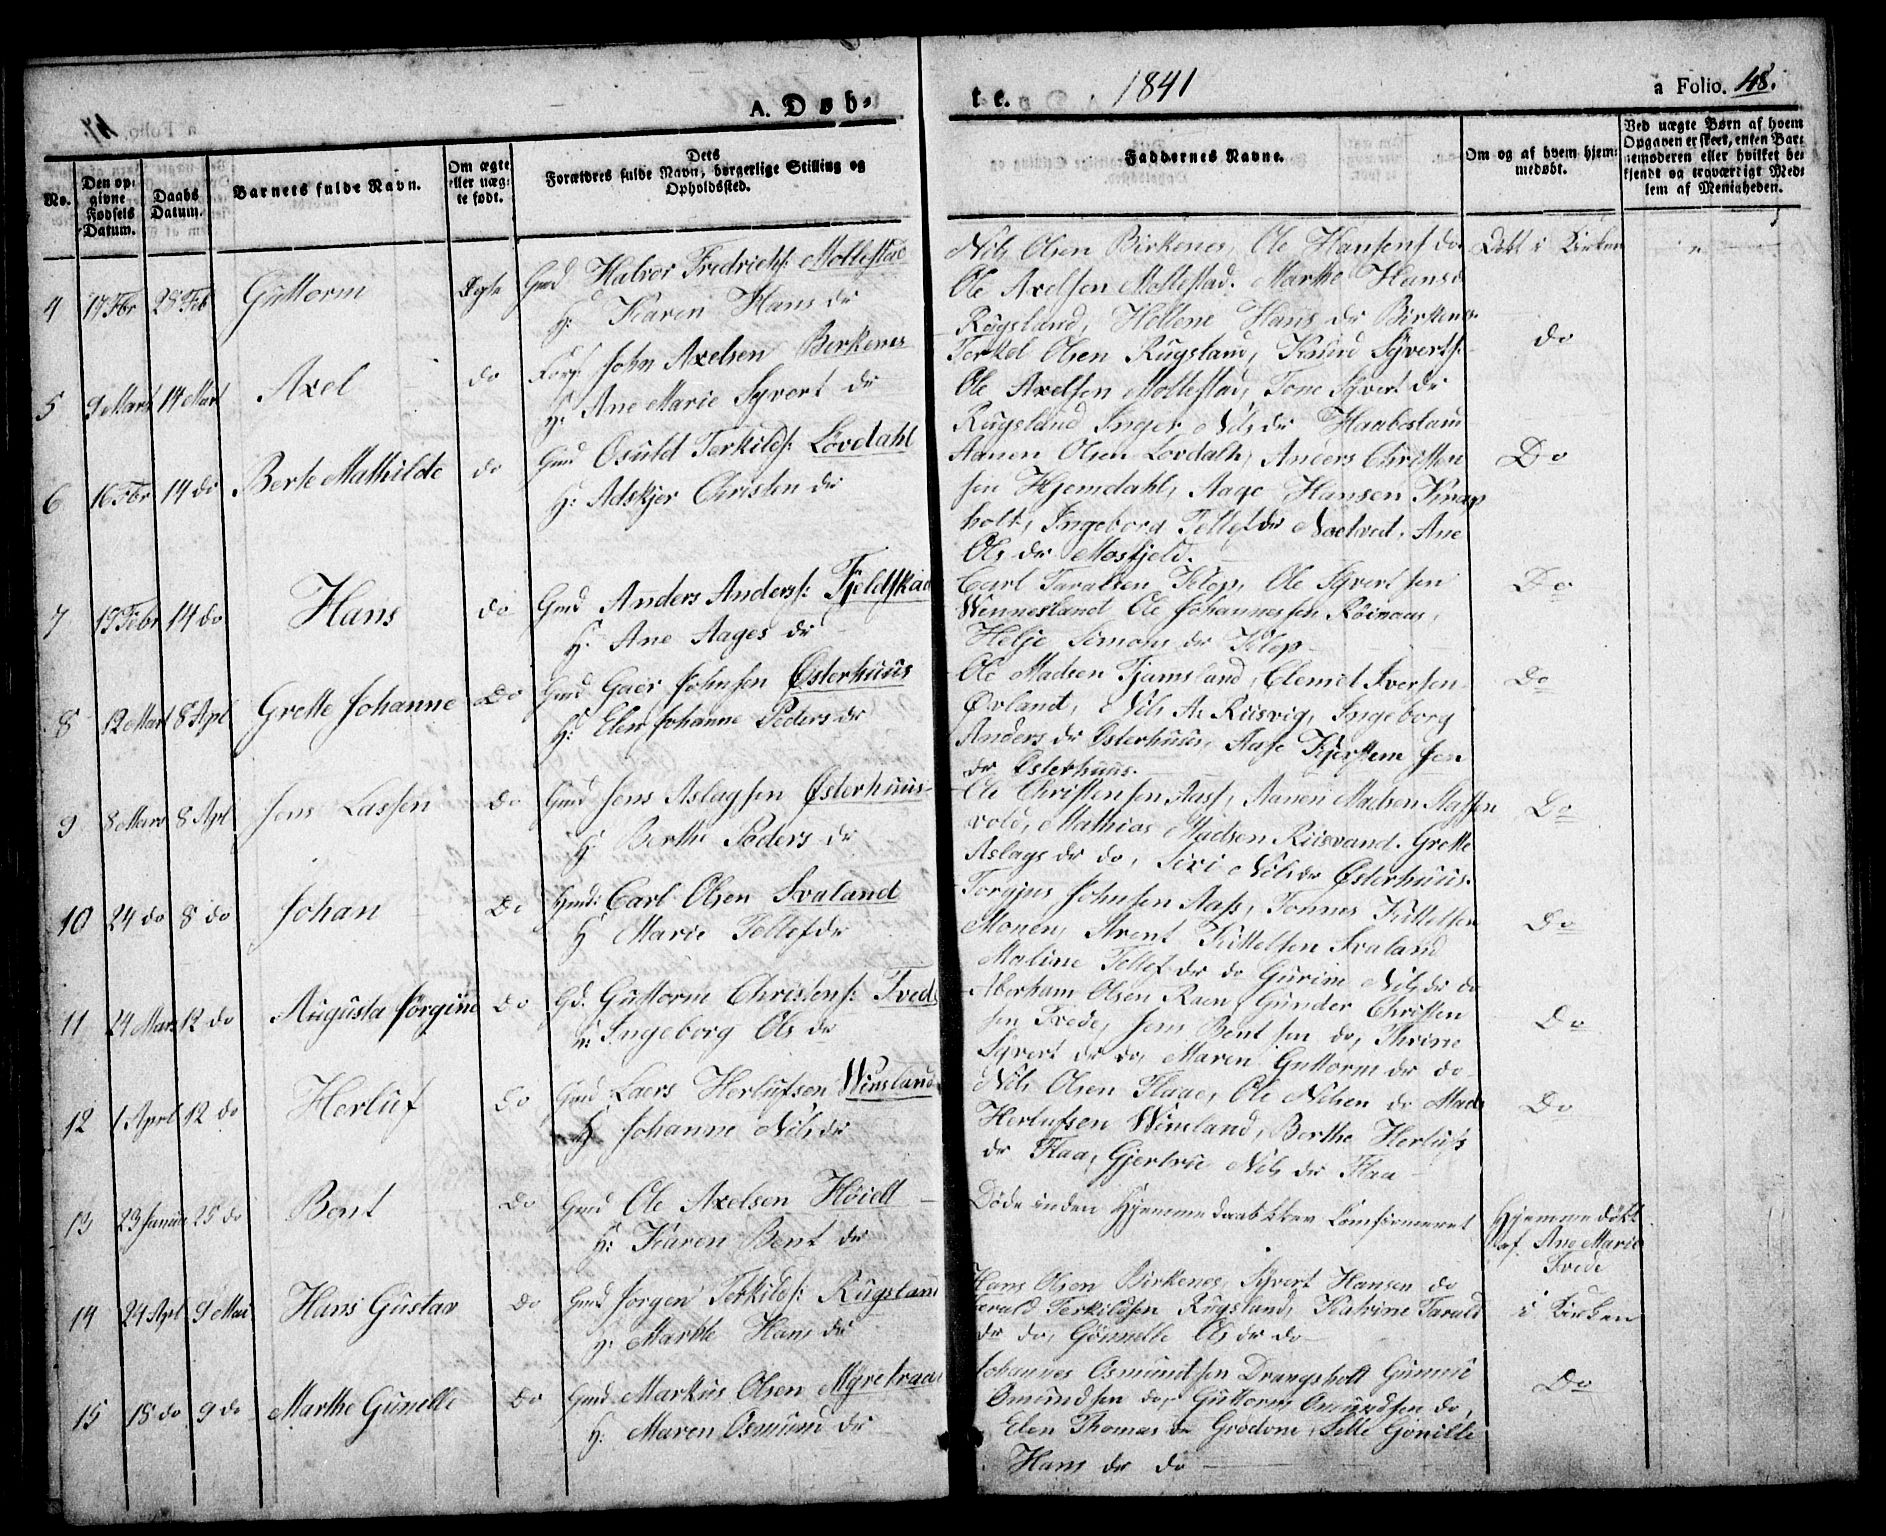 A. Døb-
te.
1841
a Folio. 48.
No.
Den op-
givne
Fødsels
Datum.
Daabs
Datum.
Barnets fulde Navn.
Om ægte
eller uæg-
te født.
Dets
Forældres fulde Navn, borgerlige Stilling og
Opholdssted.
Faddernes Navne.
Om og af hvem hjem-
medøbt.
Ved uægte Børn af hvem
Opgaven er skeet, enten Bar-
nemoderen eller hvilket be-
kjendt og troværdigt Med-
lem af Menigheden.
4 17 Fbr 28 Feb Guttorm Ægte Gmd Halvor Fredrichs: Mollestad
H: Karen Hans dr
Nils Olsen Birkenes, Ole Hansen do
Ole Axelsen Mollestad. Marthe Hans dr
Rugsland, Hellene Hans dr Birkenes
Døbt i Kirken
5 9 Marts 14 Mart Axel do John Axelsen Berkenes
H: Ane Marie Syvert dr
Terkel Olsen Rugsland, Knud Syverts:
Ole Axelsen Mollestad, Tone Syvert dr
Rugsland Inger Nils dr Haabesland
do
6 16 Fbr 14 do Berte Mathilde do Gmd Osuld Terkilds: Lovdahl
H: Adskjer Christen dr
Aanen Olsen Lovdahl, Anders Christen
sen Hjemdahl, Aage Hansen Knap
holt, Ingeborg Tellef dr Ane
Ols dr Mosfjeld.
Do
7 19 Febr 14 do Hans do Gmd Anders Anders: Fjeldskaar
H. Ane Aages dr
Carl Taralsen Klep, Ole Syvertsen
Wennesland Ole Johannessen
Helje Simons dr Klep
Do
8 12 Mart 8 Apl Grette Johanne Do Gmd Goer Johnsen Østerhuus
H: Elen Johanne Peders dr
Ole Madsen Tjamsland, Clemet Iversen
Øvland, Nils A. Riisvig, Ingeborg
Anders dr Østerhuus, Aase Kjersteine Jen
dr Østerhuus.
Do
9 8 Mars 8 Apl Jens Lassen Do Gmd Jens Aslagsen Østerhuus
H Berthe Peders dr
Ole Christensen Aass, Aanen Madsen
vold, Mathias Madsen Riisvand. Grette
Aslags dr do, Siri Nils dr Østerhuus.
Do
10 24 do 8 do Johan Do Gmd: Carl Olsen Svaland
H Marie Tellef dr
Torgjus Johnsen Aass, Tonnes Kittelsen
Monen, Arent Kittelsen Svaland
Maline Tellef dr do Gurine Nils dr do
Do
11 24 Mars 12 do Augusta Jørgine Do Gd. Guttorm Christens: Tvede
Ingeborg Ols dr
Aberham Olsen Raen, Gunder Christen
sen Tvede, Jens Bentsen do, Thrine
Syvert dr do, Maren Guttorm dr do
Do
12 1 Aprl 12 do Herluf Do Gmd Laers Herlufsen Wimsland
H Johanne Nils dr
Nils Olsen Flaae, Ole Nilsen do Mads
Herlufsen Wimland, Berthe Herlufs
dr Flaa, Gjertrue Nils dr Flaa
Do
13 23 Januar 25 do Bent Do Gmd Ole Axelsen Høiett
H: Karen Bent dr
Døde inden Hjemmedaab blev Comfirmeret
Hjemmedøbt
af. Ane Marie
Tvede
14 24 Apl 9 Mai Hans Gustav Do Gmd Jorgen Terkilds: Rugsland
H. Marthe Hans dr
Hans Olsen Birkenes, Syvert Hansen do
Terkildsen Rugsland, Katrine Tarald
dr do, Gønnelle Ols dr do
i Kirken
15 18 do 9 do Marthe Gunelle Do Gmd Markus Olsen Myrekraac
H. Maren Osmund dr
Johannes Osmundsen Drangsholt Gunnu
Omundsen do, Guttorm Omundsen do,
Elen Thomas dr Grødone, Sille Gønille
Hans dr do
Do